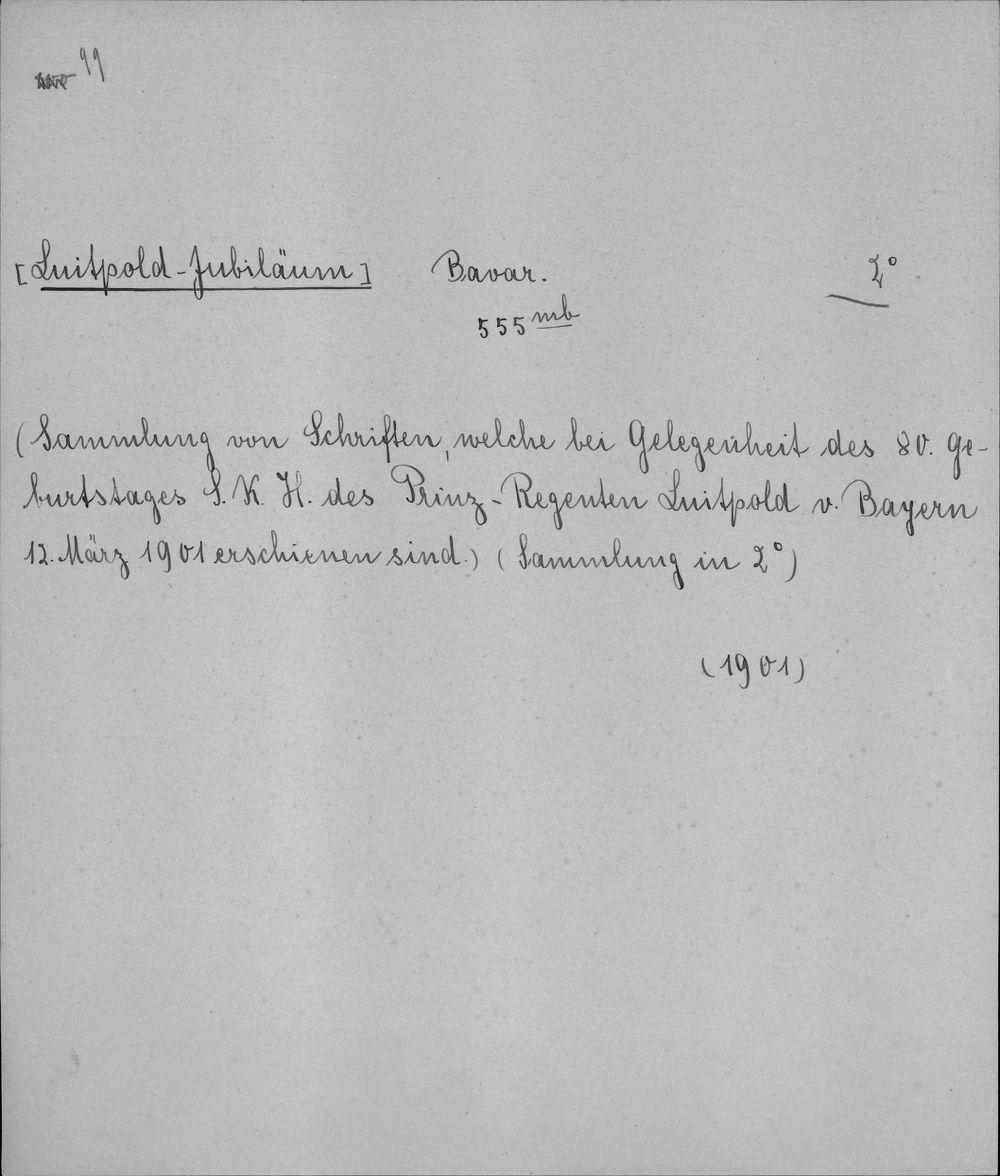 99
[Luitpold-Jubiläum] Bavar. 2°
555 mb
(Sammlung von Schriften, welche bei Gelegenheit des 80. Ge-
burtstages S. K. H. des Prinz-Regenten Luitpold v. Bayern
12. März 1901 erschienen sind.) (Sammlung in 2°)
(1901)